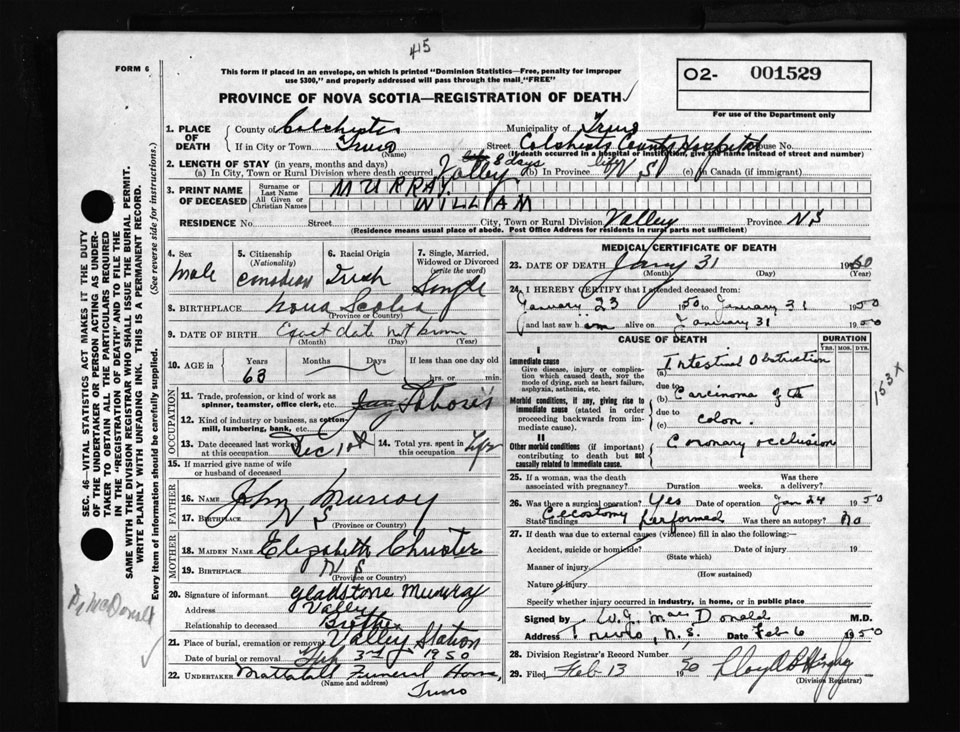 415
FORM 6
This form if placed in an envelope, on which is printed "Dominion Statistics—Free, penalty for improper
use $300," and properly addressed will pass through the mail, "FREE"
O2- 001529
For use of the Department only
PROVINCE OF NOVA SCOTIA—REGISTRATION OF DEATH
1. PLACE OF DEATH
County of Colchester Municipality of Truro
If in City or Town Truro (Name) Street Colchester County Hospital House No.
(If death occurred in a hospital or institution, give the name instead of street and number)
2. LENGTH OF STAY (in years, months and days)
(a) In City, Town or Rural Division where death occurred 8 days (b) In Province life (c) In Canada (if immigrant)
Valley N S
3. PRINT NAME OF DECEASED
Surname or Last Name MURRAY
All Given or Christian Names WILLIAM
RESIDENCE No. Street City, Town or Rural Division Valley Province N S
(Residence means usual place of abode. Post Office Address for residents in rural parts not sufficient)
SEC. 46—VITAL STATISTICS ACT MAKES IT THE DUTY
OF THE UNDERTAKER OR PERSON ACTING AS UNDER-
TAKER TO OBTAIN ALL THE PARTICULARS REQUIRED
IN THE "REGISTRATION OF DEATH" AND TO FILE THE
SAME WITH THE DIVISION REGISTRAR WHO SHALL ISSUE THE BURIAL PERMIT.
WRITE PLAINLY WITH UNFADING INK. THIS IS A PERMANENT RECORD.
Every item of information should be carefully supplied. (See reverse side for instructions.)
McDonald
4. Sex Male
5. Citizenship (Nationality) Canadian
6. Racial Origin Irish
7. Single, Married, Widowed or Divorced (write the word) Single
8. BIRTHPLACE Nova Scotia
(Province or Country)
9. DATE OF BIRTH Exact date not known
(Month) (Day) (Year)
10. AGE in Years 63 Months Days If less than one day old
hrs. or min.
OCCUPATION
11. Trade, profession, or kind of work as
spinner, teamster, office clerk, etc. Laborer
12. Kind of industry or business, as cotton-
mill, lumbering, bank, etc.
13. Date deceased last worked at this occupation Dec 1st
14. Total yrs. spent in this occupation life
15. If married give name of wife
or husband of deceased
FATHER
16. NAME John Murray
17. BIRTHPLACE N S
(Province or Country)
MOTHER
18. MAIDEN NAME Elizabeth
19. BIRTHPLACE N S
(Province or Country)
20. Signature of informant Gladstone Murray
Address Valley
Relationship to deceased Brother
21. Place of burial, cremation or removal Valley Station
Date of burial or removal Feb 3rd 1950
22. UNDERTAKER Mattatall Funeral Home,
(Name and address) Truro
MEDICAL CERTIFICATE OF DEATH
23. DATE OF DEATH Jany 31 1950
(Month) (Day) (Year)
24. I HEREBY CERTIFY that I attended deceased from:
January 23 1950 to January 31 1950
and last saw him alive on January 31 1950
CAUSE OF DEATH
DURATION
YRS. MOS. DYS.
I
Immediate cause
Give disease, injury or complica-
tion which caused death, not the
mode of dying, such as heart failure,
asphyxia, asthenia, etc.
(a) Intestinal Obstruction
due to
Morbid conditions, if any, giving rise to
immediate cause (stated in order
proceeding backwards from im-
mediate cause).
(b) Carcinoma of the
due to
(c) colon.
II
Other morbid conditions (if important)
contributing to death but not
causally related to immediate cause.
Coronary occlusion
153X
25. If a woman, was the death
associated with pregnancy? Duration weeks. Was there
a delivery?
26. Was there a surgical operation? Yes Date of operation Jan 24 1950
State findings Cecostomy performed Was there an autopsy? No
27. If death was due to external causes (violence) fill in also the following:—
Accident, suicide or homicide? Date of injury 19
(State which)
Manner of injury
(How sustained)
Nature of injury
Specify whether injury occurred in industry, in home, or in public place
Signed by W.J. MacDonald M.D.
Address Truro, N.S. Date Feb 6 1950
28. Division Registrar's Record Number
29. Filed Feb 13 1950 Lloyd
(Division Registrar)